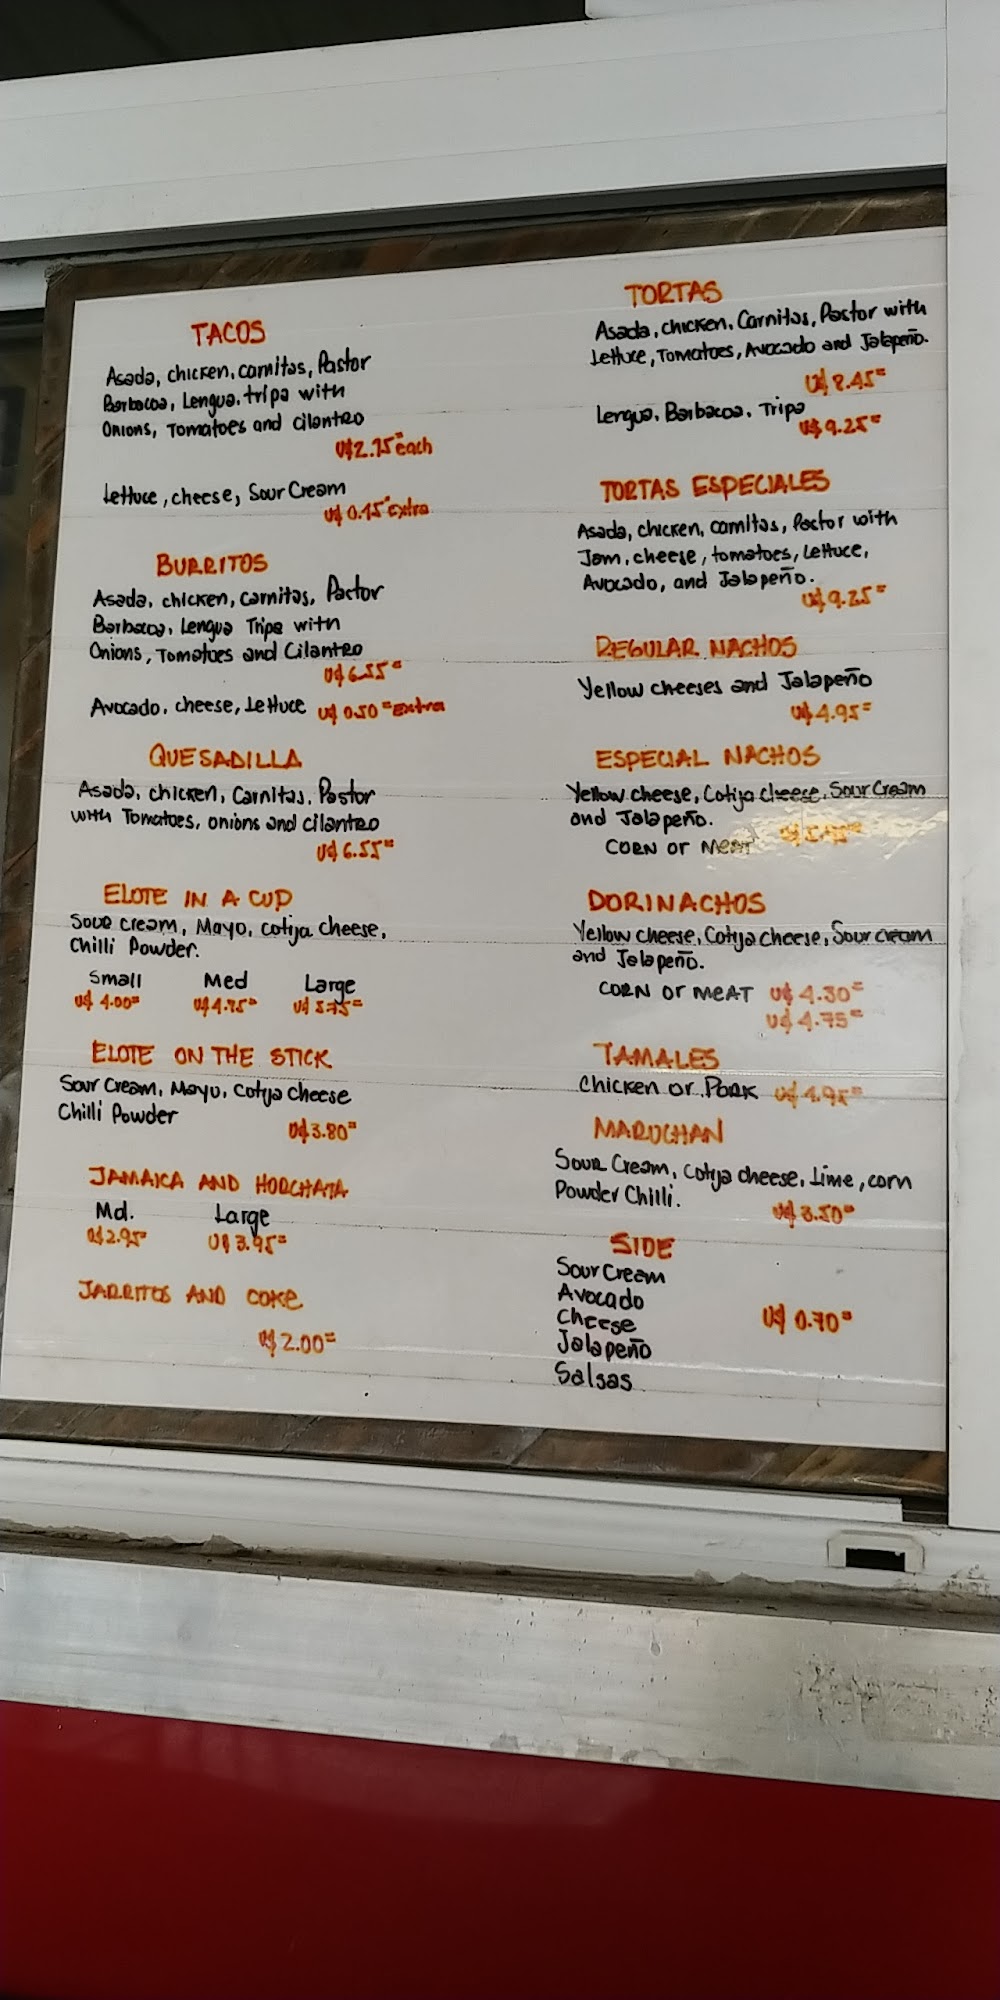 TACOS
Asada, chicken, carnitas, Pastor
Barbacoa, Lengua, tripa with
Onions, Tomatoes and cilantro
U$2.75= each
Lettuce, cheese, Sour Cream
Extra
BURRITOS
Asada, chicken, carnitas, Pactor
Barbacoa, Lengua Tripa with
Onions, Tomatoes and Cilantro
U$6.55=
Avocado, cheese, Lettuce U$ 0.50= Extra
QUESADILLA
Asada, chicken, Carnitas, Pastor
with Tomatoes, onions and cilantro
U$ 6.55=
ELOTE IN A CUP
Sour cream, Mayo, cotija cheese,
Chilli Powder.
Small Med Large
U$ 4.00= U$4.75= U$ 5.75=
ELOTE ON THE STICK
Sour Cream, Mayo, Cotija cheese
Chilli Powder
U$3.80=
JAMAICA AND HORCHATA
Md. Large
U$2.95= U$3.95=
JARRITOS AND COKE
U$2.00=
TORTAS
Asada, chicken, Carnitas, Pastor with
Lettuce, Tomatoes, Avocado and Jalapeño.
U$ 8.45=
Lengua, Barbacoa, Tripa
U$9.25=
TORTAS ESPECIALES
Asada, chicken, carnitas, Pastor with
Jam, cheese, tomatoes, Lettuce,
Avocado, and Jalapeño.
U$9.25=
REGULAR NACHOS
Yellow cheeses and Jalapeño
U$4.95=
ESPECIAL NACHOS
Yellow cheese, Cotija cheese, Sour Cream
and Jalapeño.
CORN or MEAT
DORINACHOS
Yellow cheese, Cotija cheese, Sour cream
and Jalapeño.
CORN or MEAT U$ 4.30=
U$ 4.75=
TAMALES
Chicken or Pork U$4.95=
MARUCHAN
Sour Cream, Cotija cheese, Lime, corn
Powder Chilli.
U$ 3.50=
SIDE
Sour Cream
Avocado
Cheese U$ 0.70=
Jalapeño
Salsas